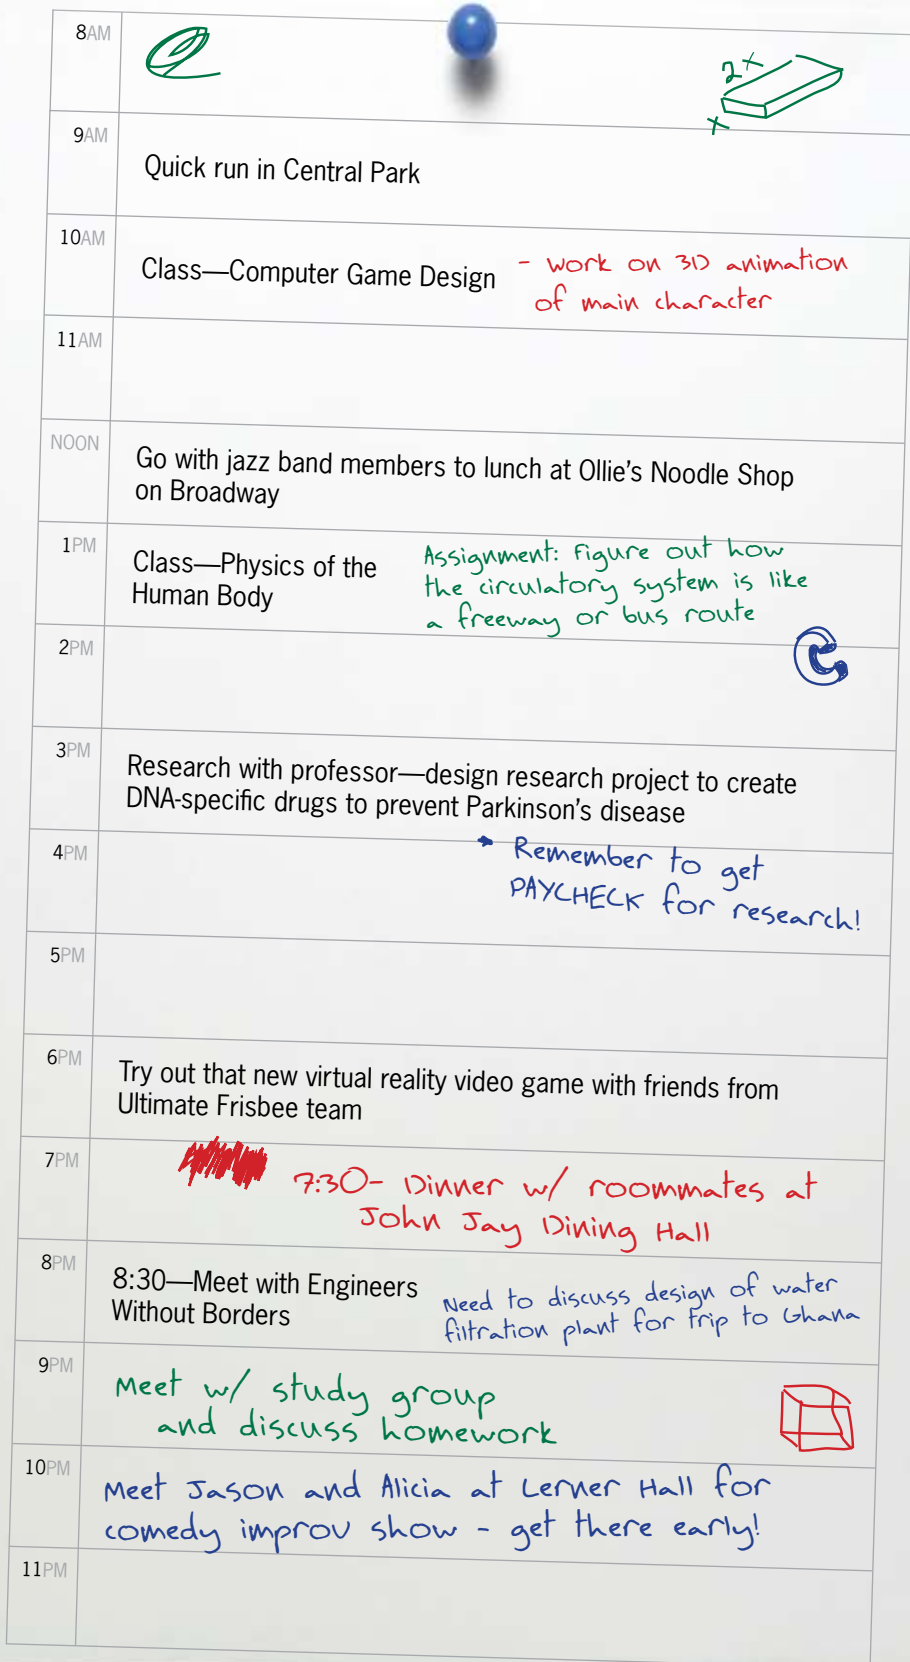 8AM
2 x
x
9AM
Quick run in Central Park
10AM
Class—Computer Game Design
- work on 3D animation
of main character
11AM
NOON
Go with jazz band members to lunch at Ollie's Noodle Shop
on Broadway
1PM
Class—Physics of the
Human Body
Assignment: Figure out how
the circulatory system is like
a freeway or bus route
2PM
3PM
Research with professor—design research project to create
DNA-specific drugs to prevent Parkinson's disease
4PM
Remember to get
PAYCHECK for research!
5PM
6PM
Try out that new virtual reality video game with friends from
Ultimate Frisbee team
7PM
7:30- Dinner w/ roommates at
John Jay Dining Hall
8PM
8:30—Meet with Engineers
Without Borders
Need to discuss design of water
filtration plant for trip to Ghana
9PM
Meet w/ study group
and discuss homework
10PM
Meet Jason and Alicia at Lerner Hall for
comedy improv show - get there early!
11PM